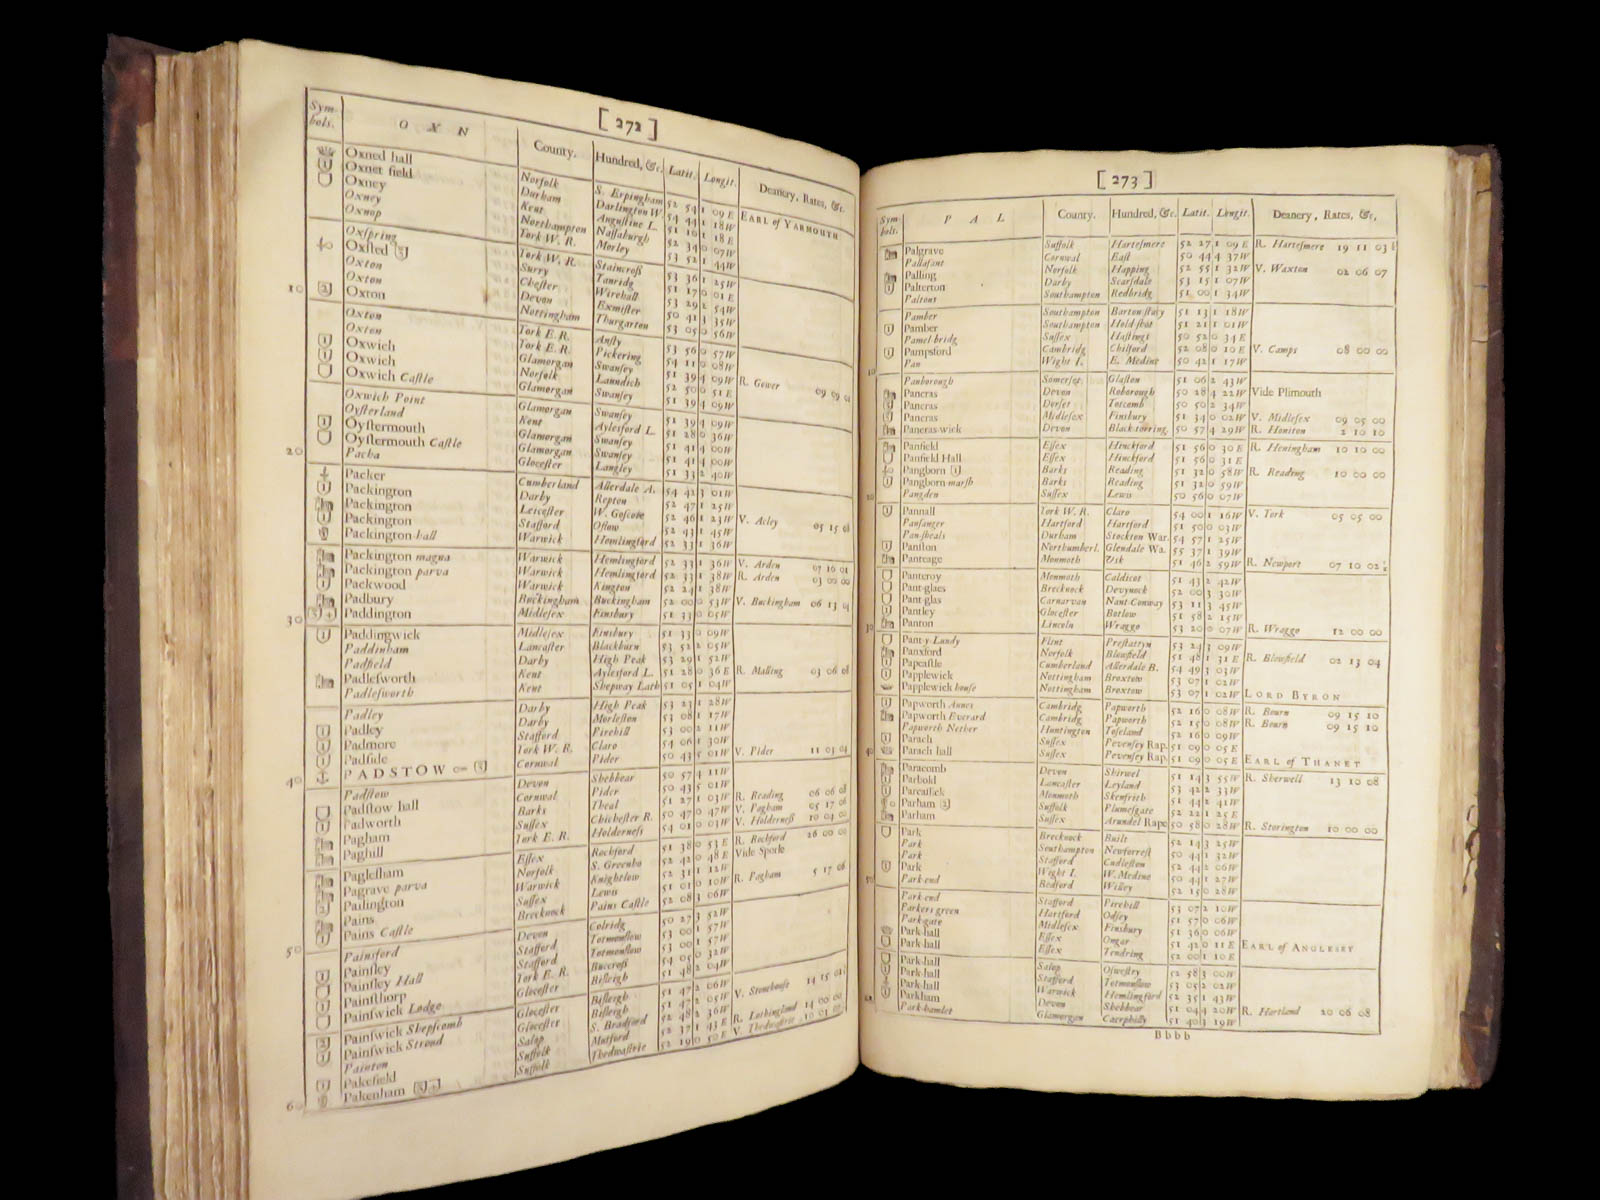 [ 272 ]
Sym-bols. O X N County. Hundred, &c. Latit. Longit. Deanery, Rates, &c.
Oxned hall Norfolk S. Erpingham 52 54 1 09 E EARL of YARMOUTH
Oxnet field Durham Darlington W. 54 44 1 18 W
Oxney Kent Auguſtine L. 51 10 1 18 E
Oxney Northampton Naſſaburgh 52 34 0 07 W
Oxnop York W. R. Morley 53 52 1 44 W
Oxſpring York W. R. Staincroſs 53 36 1 25 W
Oxſted Surry Tanridg 51 17 0 01 E
Oxton Cheſter Wirehall 53 29 2 54 W
Oxton Devon Exmiſter 50 41 3 35 W
10 Oxton Nottingham Thurgarton 53 05 0 56 W
Oxton York E. R. Anſty 53 56 0 57 W
Oxton York E. R. Pickering 54 11 0 08 W
Oxwich Glamorgan Swanſey 51 39 4 09 W R. Gower 09 09 01
Oxwich Norfolk Laundich 52 50 0 51 E
Oxwich Caſtle Glamorgan Swanſey 51 39 4 09 W
Oxwich Point Glamorgan Swanſey 51 39 4 09 W
Oyſterland Kent Aylesford L. 51 28 0 36 W
Oyſtermouth Glamorgan Swanſey 51 41 4 00 W
Oyſtermouth Caſtle Glamorgan Swanſey 51 41 4 00 W
20 Pacha Gloceſter Langley 51 33 2 40 W
Packer Cumberland Allerdale A. 54 42 3 01 W
Packington Darby Repton 52 47 1 25 W
Packington Leiceſter W. Goſcote 52 46 1 23 W V. Acley 05 15 08
Packington Stafford Offlow 52 43 1 45 W
Packington hall Warwick Hemlingford 52 33 1 36 W
Packington magna Warwick Hemlingford 52 33 1 36 W V. Arden 07 10 01
Packington parva Warwick Hemlingford 52 33 1 38 W R. Arden 03 00 00
Packwood Warwick Kington 52 24 1 38 W
Padbury Buckingham Buckingham 52 00 0 53 W V. Buckingham 06 13 04
30 Paddington Midleſex Finsbury 51 33 0 05 W
Paddingwick Midleſex Finsbury 51 33 0 09 W
Paddinham Lancaſter Blackburn 53 52 2 05 W
Padfield Darby High Peak 53 29 1 52 W
Padleſworth Kent Aylesford L. 51 28 0 36 E R. Malling 03 06 08
Padleſworth Kent Shepway Lath 51 05 1 04 W
Padley Darby High Peak 53 23 1 28 W
Padley Darby Morleſton 53 08 1 17 W
Padmore Stafford Pirehill 53 00 2 11 W
Padſide York W. R. Claro 54 06 1 30 W
40 PADSTOW Cornwal Pider 50 43 5 01 W V. Pider 11 03 04
Padſtow Devon Shebbear 50 57 4 11 W
Padſtow hall Cornwal Pider 50 43 5 01 W
Padworth Barks Theal 51 27 1 03 W R. Reading 06 06 08
Pagham Suſſex Chicheſter R. 50 47 0 47 W V. Pagham 05 17 06
Paghill York E. R. Holderneſs 54 01 0 03 W V. Holderneſs 10 04 00
Pagleſham Eſſex Rochford 51 38 0 53 E R. Rochford 26 00 00
Pagrave parva Norfolk S. Greenho 52 42 0 48 E Vide Sporle
Pailington Warwick Knightlow 52 31 1 12 W
Pains Suſſex Lewis 51 01 0 10 W R. Pagham 5 17 06
50 Pains Caſtle Brecknock Pains Caſtle 52 08 3 06 W
Painsford Devon Colridg 50 27 3 52 W
Painſley Stafford Totmonſlow 53 00 1 57 W
Painſley Hall Stafford Totmonſlow 53 00 1 57 W
Painſthorp York E. R. Buccroſs 54 05 0 32 W
Painſwick Lodge Gloceſter Biſleigh 51 48 2 04 W
Painſwick Shepſcomb Gloceſter Biſleigh 51 47 2 06 W
Painſwick Stroud Gloceſter Biſleigh 51 47 2 05 W V. Stonehouſe 14 15 02
Painton Salop S. Bradford 52 48 2 36 W
Pakefield Suffolk Mutford 52 37 1 43 E R. Lothingland 14 00 00
60 Pakenham Suffolk Thedwaſtrie 52 19 0 50 E V. Thedwaſtrie 10 01 00
[ 273 ]
Sym-bols. P A L County. Hundred, &c. Latit. Longit. Deanery, Rates, &c,
Palgrave Suffolk Harteſmere 52 27 1 09 E R. Harteſmere 19 11 03
Pallafant Cornwal Eaſt 50 44 4 37 W
Palling Norfolk Happing 52 55 1 32 W V. Waxton 02 06 07
Palterton Darby Scarſdale 53 15 1 07 W
Paltons Southampton Redbridg 51 00 1 34 W
Pamber Southampton Barton-ſtacy 51 13 1 18 W
Pamber Southampton Hold-ſhot 51 21 1 01 W
Pamel-bridg Suſſex Haſtings 50 52 0 34 E
Pampsford Cambridg Chilford 52 08 0 10 E V. Camps 08 00 00
10 Pan Wight I. E. Medine 50 42 1 17 W
Panborough Somerſet Glaſton 51 06 2 43 W
Pancras Devon Roborough 50 28 4 22 W Vide Plimouth
Pancras Dorſet Totcomb 50 50 2 34 W
Pancras Midleſex Finsbury 51 34 0 02 W V. Midleſex 09 05 00
Pancras-wick Devon Black-torring 50 57 4 29 W R. Honiton 2 10 10
Panfield Eſſex Hinckford 51 56 0 30 E R. Heningham 10 10 00
Panfield Hall Eſſex Hinckford 51 56 0 31 E
Pangborn Barks Reading 51 32 0 58 W R. Reading 10 00 00
Pangborn-marſh Barks Reading 51 32 0 59 W
20 Pangden Suſſex Lewis 50 56 0 07 W
Pannall York W. R. Claro 54 00 1 16 W V. York 05 05 00
Panſanger Hartford Hartford 51 50 0 03 W
Pan-ſheals Durham Stockton War. 54 57 1 25 W
Panſton Northumberl. Glendale Wa. 55 37 1 39 W
Panteage Monmoth Usk 51 46 2 59 W R. Newport 07 10 02
Panteroy Monmoth Caldicot 51 43 2 42 W
Pant-glaes Brecknock Devynock 52 00 3 30 W
Pant-glas Carnarvan Nant-Conway 53 11 3 45 W
Pantley Gloceſter Botlow 51 58 2 15 W
30 Panton Lincoln Wraggo 53 20 0 07 W R. Wraggo 12 00 00
Pant-y-Lundy Flint Preſtattyn 53 24 3 09 W
Panxford Norfolk Blowfield 51 48 1 31 E R. Blowfield 02 13 04
Papcaſtle Cumberland Allerdale B. 54 49 3 03 W
Papplewick Nottingham Broxtow 53 07 1 02 W
Papplewick houſe Nottingham Broxtow 53 07 1 02 W LORD BYRON
Papworth Annes Cambridg Papworth 52 16 0 08 W R. Bourn 09 15 10
Papworth Everard Cambridg Papworth 52 15 0 08 W R. Bourn 09 15 10
Papworth Nether Huntington Toſeland 52 16 0 09 W
Parach Suſſex Pevenſey Rap. 51 09 0 05 E
40 Parach hall Suſſex Pevenſey Rap. 51 09 0 05 E EARL of THANET
Paracomb Devon Shirwel 51 14 3 55 W R. Sherwell 13 10 08
Parbold Lancaſter Leyland 53 42 2 33 W
Parcaſſick Monmoth Skenfrith 51 44 2 41 W
Parham Suffolk Plumeſgate 52 22 1 25 E
Parham Suſſex Arundel Rape 50 58 0 28 W R. Storington 10 00 00
Park Brecknock Built 52 14 3 25 W
Park Southampton Newforreſt 50 44 1 32 W
Park Stafford Cudleſton 52 44 2 06 W
Park Wight I. W. Medine 50 44 1 27 W
50 Park-end Bedford Willey 52 15 0 28 W
Park-end Stafford Pirehill 53 07 2 10 W
Parkers green Hartford Odſey 51 57 0 06 W
Park-gate Midleſex Finsbury 51 36 0 06 W
Park-hall Eſſex Ongar 51 42 0 11 E EARL of ANGLESEY
Park-hall Eſſex Tendring 52 00 1 10 E
Park-hall Salop Oſweſtry 52 58 3 00 W
Park-hall Stafford Totmonſlow 53 05 2 02 W
Park-hall Warwick Hemlingford 52 35 1 43 W
Parkham Devon Shebbear 51 04 4 20 W R. Hartland 20 06 08
Park-hamlet Glamorgan Caerphilly 51 40 3 19 W
B b b b